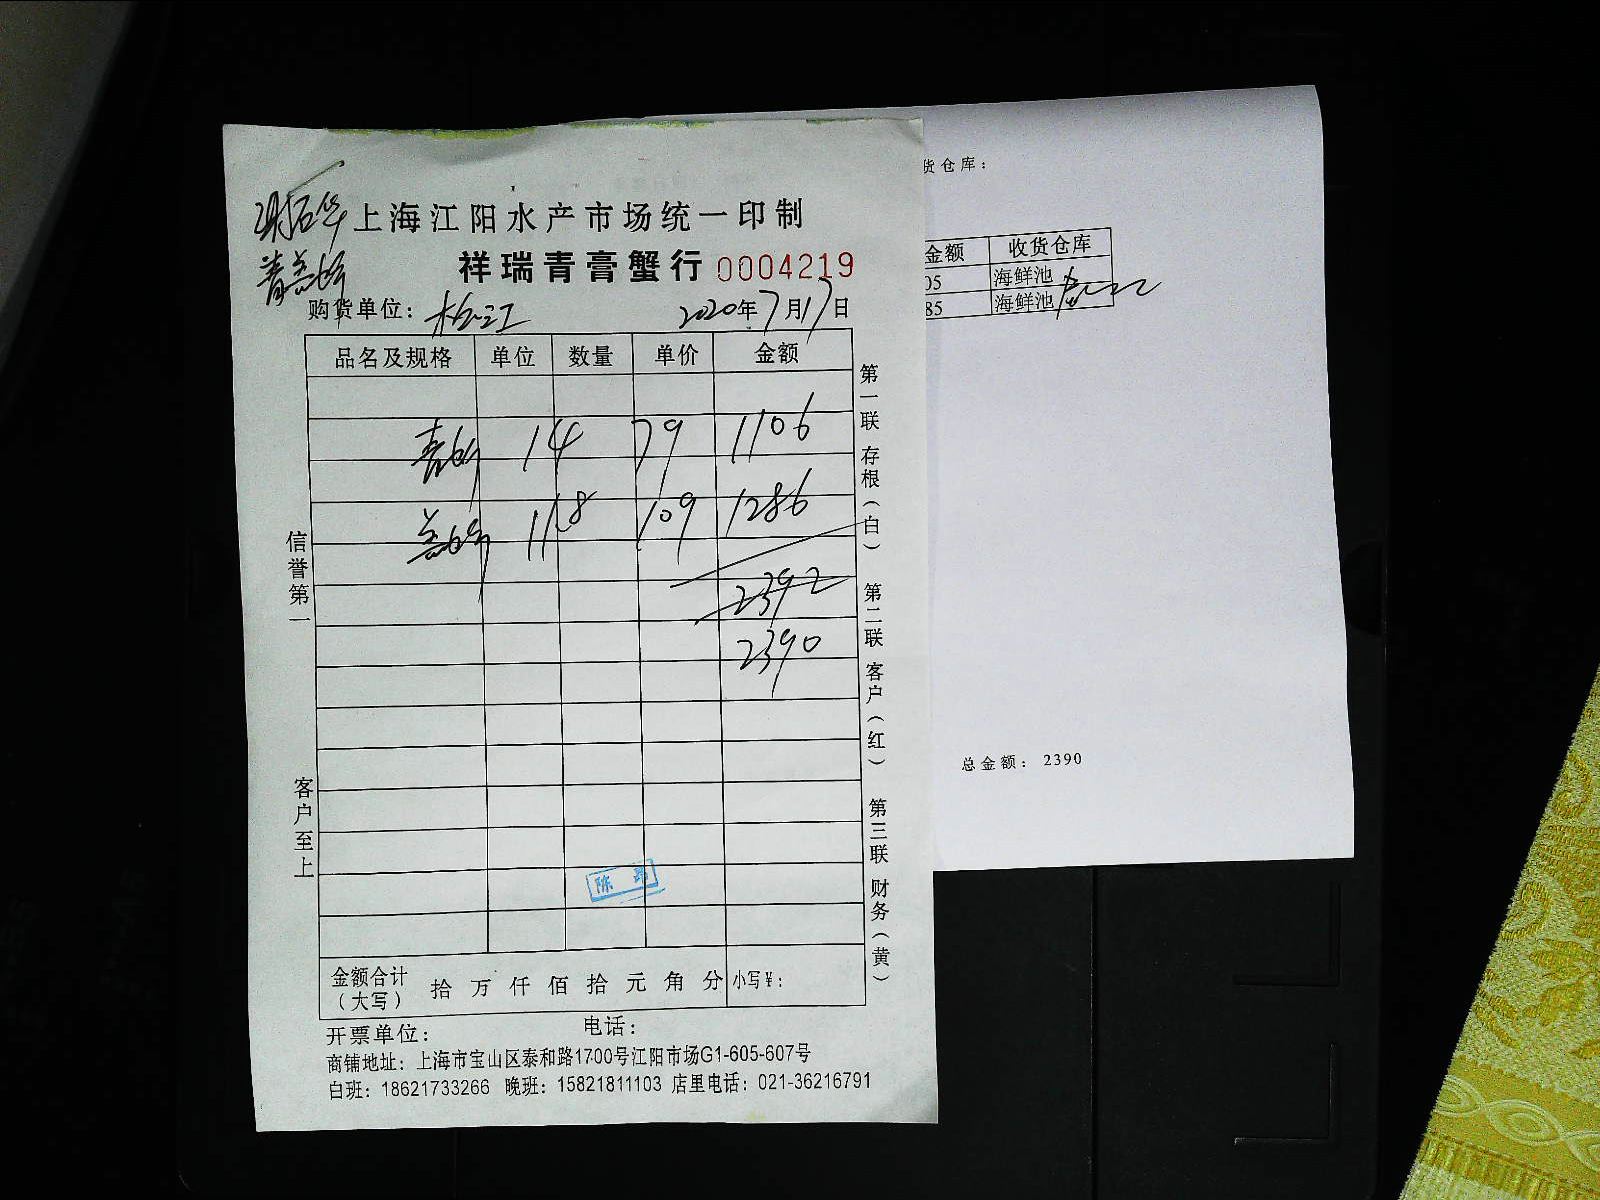 上海江阳水产市场统一印制
祥瑞青膏蟹行 0004219
购货单位： 松江 2020年7月17日
品名及规格 单位 数量 单价 金额
14 79 1106
11.8 109 1286
2392
2390
金额合计（大写） 拾 万 仟 佰 拾 元 角 分 小写¥：
开票单位： 电话：
商铺地址：上海市宝山区泰和路1700号江阳市场G1-605-607号
白班：18621733266 晚班：15821811103 店里电话：021-36216791
信誉第一
客户至上
第一联 存根（白） 第二联 客户（红） 第三联 财务（黄）
陈
货仓库：
金额 收货仓库
05 海鲜池
85 海鲜池
总金额：2390